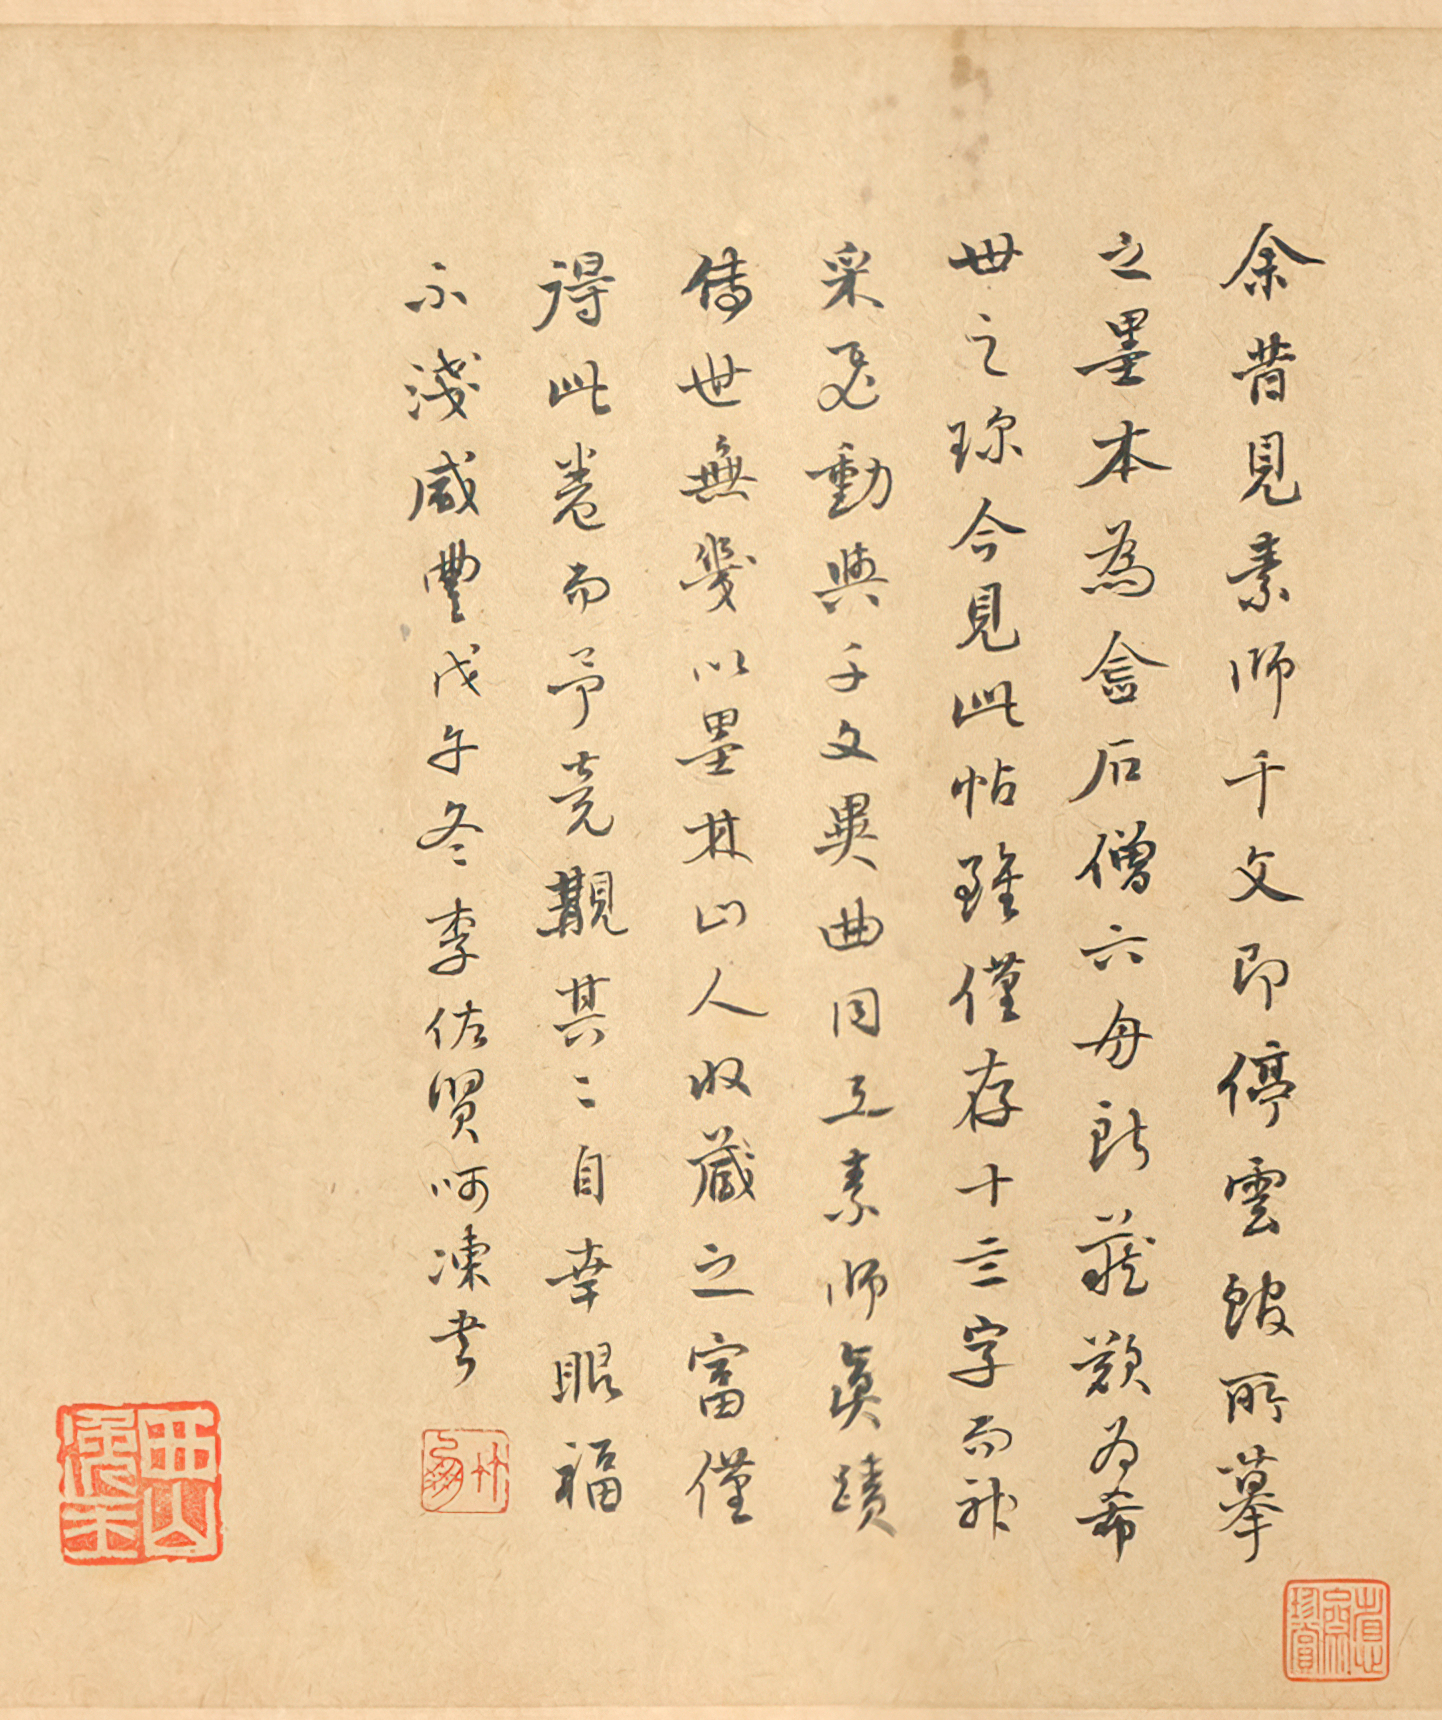 余昔見素師千文即停雲館所摹
之墨本為盦后僧六舟所藏歎為希
世之珎今見此帖雖僅存十三字而神
采飛動與千文異曲同工素師真蹟
傳世無幾以墨林山人收藏之富僅
得此卷而予竟覯其二自幸眼福
不淺咸豐戊午冬李佐賢呵凍書